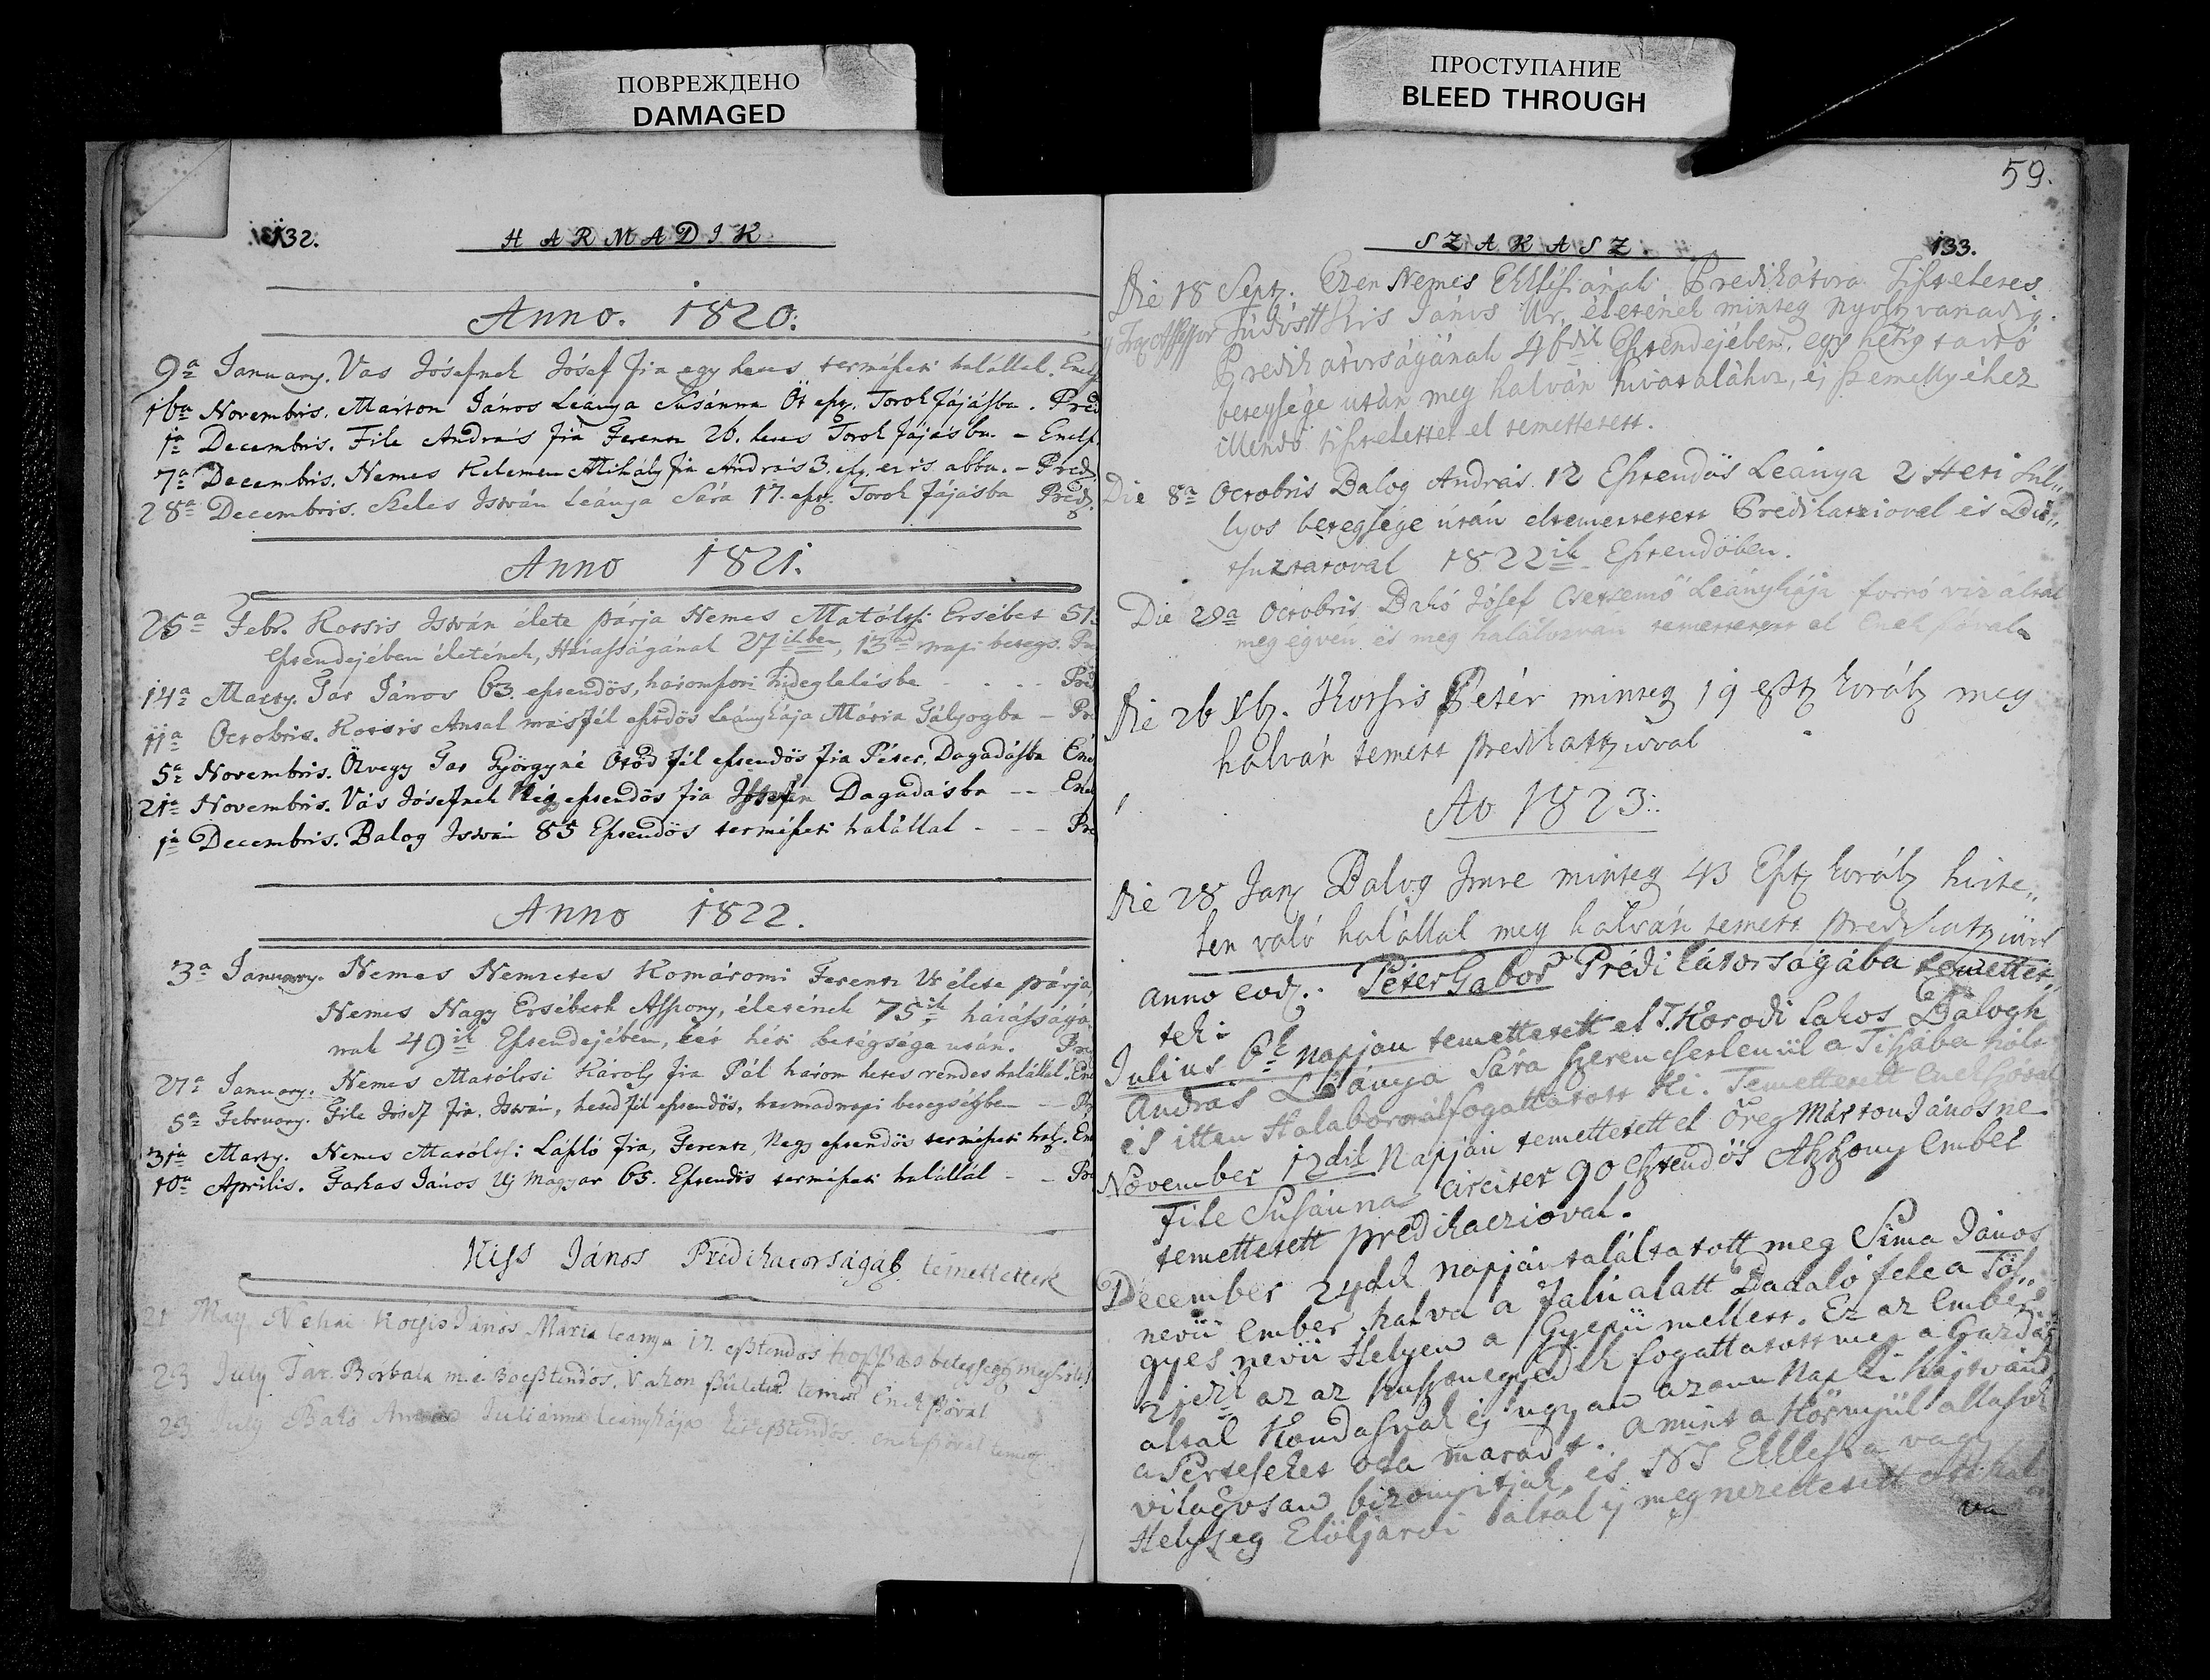 ПОВРЕЖДЕНО
DAMAGED
132.
HARMADIK
Anno. 1820.
9a January. Vas Jósefnek Jósef fia egy hetes természeti halállal. Enek
16a Novembris. Marton János Leánya Susánna Öt esz. Torok fájásba. Pred
1a Decembris. File András fia Ferentz 26. hetes Torok fájásba. - Enek
7a Decembris. Nemes Kelemen Mihály fia András 3. esz. ez is abba. - Pred
28a Decembris. Szeles István Leánya Sára 17. esz. Torok fájásba Pred.
Anno 1821.
25a Febr. Kotsis István élete párja Nemes Matóltsi Ersébet 51
Esztendejében életének, Házasságának 27ikben, 13ad napi betegs.
14a Marty. Tar János 63. esztendös, háromszori hideglelésbe - - - - Préd
11a Octobris. Kotsis Antal másfél esztdös leánykája Mária Gályogba - Pre
5a Novembris. Özvegy Tar Györgyné Ötöd fél esztendös fia Péter, Dagadásba Enek
21a Novembris. Vas Jósefnek Négy esztendös fia Dagadásba - - Enek
1a Decembris. Balog István 85 Esztendös természeti halállal - - - Pre
Anno 1822.
3a January. Nemes Nemzetes Komáromi Ferentz Ur élete párja
Nemes Nagy Ersébeth Asszony, életének 75ik házasságá
nak 49ik Esztendejében, két héti betegsége után. Pre
27a January. Nemes Matóltsi Károly fia Pál három hetes rendes halállal. Ene
5a February. File Josef fia. István, hetedfél esztendös, harmadnapi betegségben - - Pr
31a Marty. Nemes Matóltsi László fia, Ferentz, Negy esztendös természeti hal. Ene
10a Aprilis. Farkas János Uj Magyar 65. Esztendös természeti halállal - - Pre
Kiss János Prédikátorságáb temettettek
21 May. Nehai Kotsis János Maria leanya 17. esztendos hoszszas betegsegb meghalt
23 July Tar. Borbála Vakon született temet Enekszóval
23 July Bakó Juliánna leánykája két esztendös. enekszoval temet
ПРОСТУПАНИЕ
BLEED THROUGH
59.
SZAKASZ.
133.
Die 18 Sept. Ezen Nemes Ekklésiának Predikátora Tiszteletes
Tudós Kis János Ur, életének minteg nyoltzvanadig
Predikátorságának 46dik Esztendejében, egy hétig tartó
betegsége után meg halván hivatalához, és személlyéhez
illendö tisztelettel el temettetett.
Die 8a Octobris Balog András 12 Esztendös Leánya 2 Heti Súl„
lyos betegsége után eltemettetett Predikatzioval és Bu„
tsuztatoval 1822ik Esztendöben.
Die 29a Octobris Bakó Jósef Csetsemö Leánykája forró viz által
meg égvén és meg halálozván temettetett el Enekszóval
Die 26 Xb. Kotsis Petér minteg 19 eszt koráb meg
halván temett predikatzioval
Ao 1823.
Die 28 Jan Balog Imre minteg 43 Eszt koráb hirte„
len való halállal meg halván temett predikatziovl
anno eod. Péter Gabor Prédikátorságába temettet„
tek:
Julius 6k napján temettetett el T. Korodi Lakos Balogh
András Leánya Sára szerencsetlenül a Tiszába holt
és itten Halabornál fogattatott ki. Temettetett Enekszoval
November 12dik Napján temettetett el öreg Márton Jánosne
File Susánna circiter 90 Esztendös Aszszony Ember
temettetett predikaczioval.
December 24dik napján találtatott meg Sima János
nevü Ember halva a falu alatt Badaló fele a Töl„
gyes nevü Helyen a Gyepü mellett. Ez az Ember
21dik az az huszonegyedik fogattatott meg a Gazdák
által Kondásnak és ugyan azonn Nap ki hajtván
a Perteseket oda maradt. amint a Környül allasok
világosan bizonyitják, és NT Ekklesia vagy
Helység Elöljaroi által is meg nezettetett
va